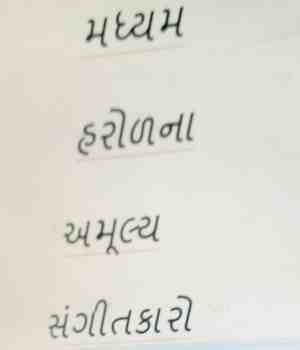 મધ્યમ
હરોળના
અમૂલ્ય
સંગીતકારો